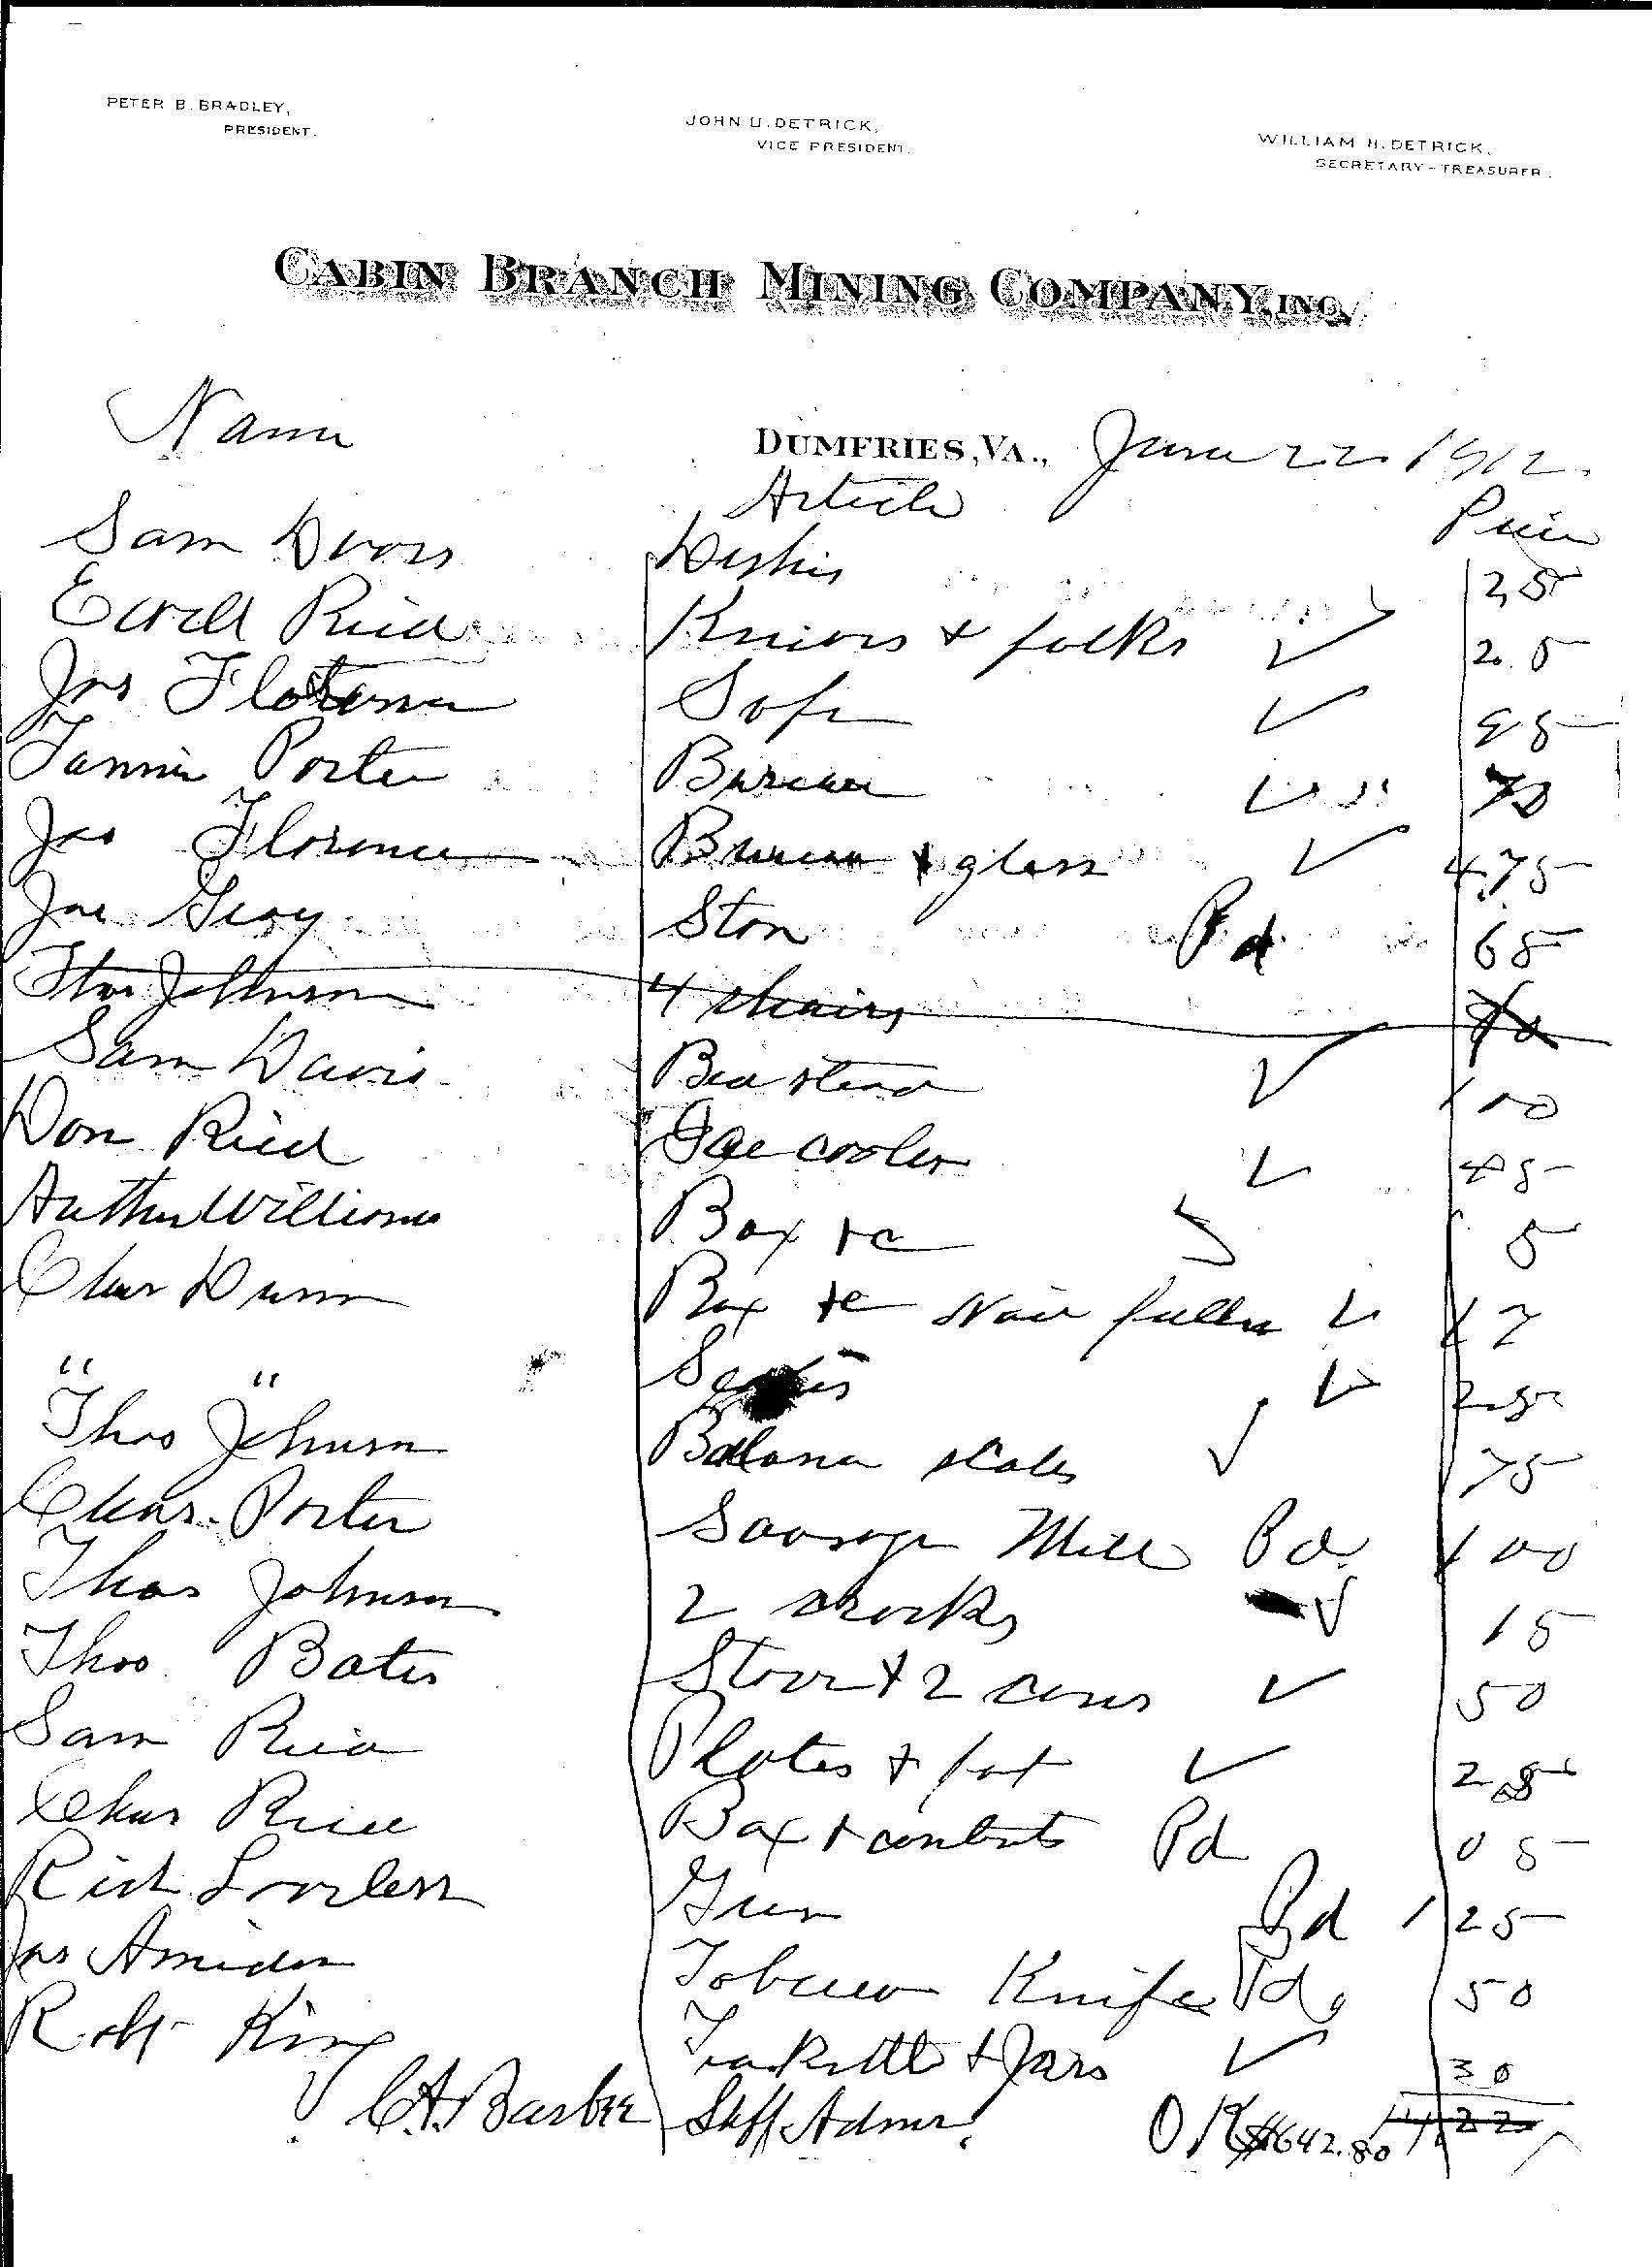 PETER B. BRADLEY,
PRESIDENT.
JOHN U. DETRICK,
VICE PRESIDENT.
WILLIAM H. DETRICK,
SECRETARY-TREASURER.
CABIN BRANCH MINING COMPANY, INC.
Name
DUMFRIES, VA., June 22 1912.
Article Price
Sam Dishes 25
Reid Knives + folks ✓ 20.5
Jas Sofa ✓ 95
Fannie Porter Bureau ✓ 70
Jas Florence Bureau + glass ✓ 4.75
Joe Gray Stove Pd 65
Thos Johnson 4 chairs
Sam Davis Bedstead ✓ 1 00
Don Reid Ice cooler ✓ 45
Arthur Williams Box + c 5
Chas Dunn Box + c Nail puller ✓ 17
" " ✓ 25
Thos Johnson Balance scales ✓ 75
Chas. Porter Sausage Mill Pd. 1 00
Thos Johnson 2 crocks ✓ 15
Thos. Bates Stove + 2 cans ✓ 50
Sam Reid Plates + pot ✓ 25
Chas Reid Box + contents Pd 05
Rich Lovless Gun Pd 1 25
Jas Amidon Tobacco Knife Pd. 50
Robt King Tea Kettle + Jars ✓ 30
C.A. Barbee Shff. Admr. OK $642.80 14.22